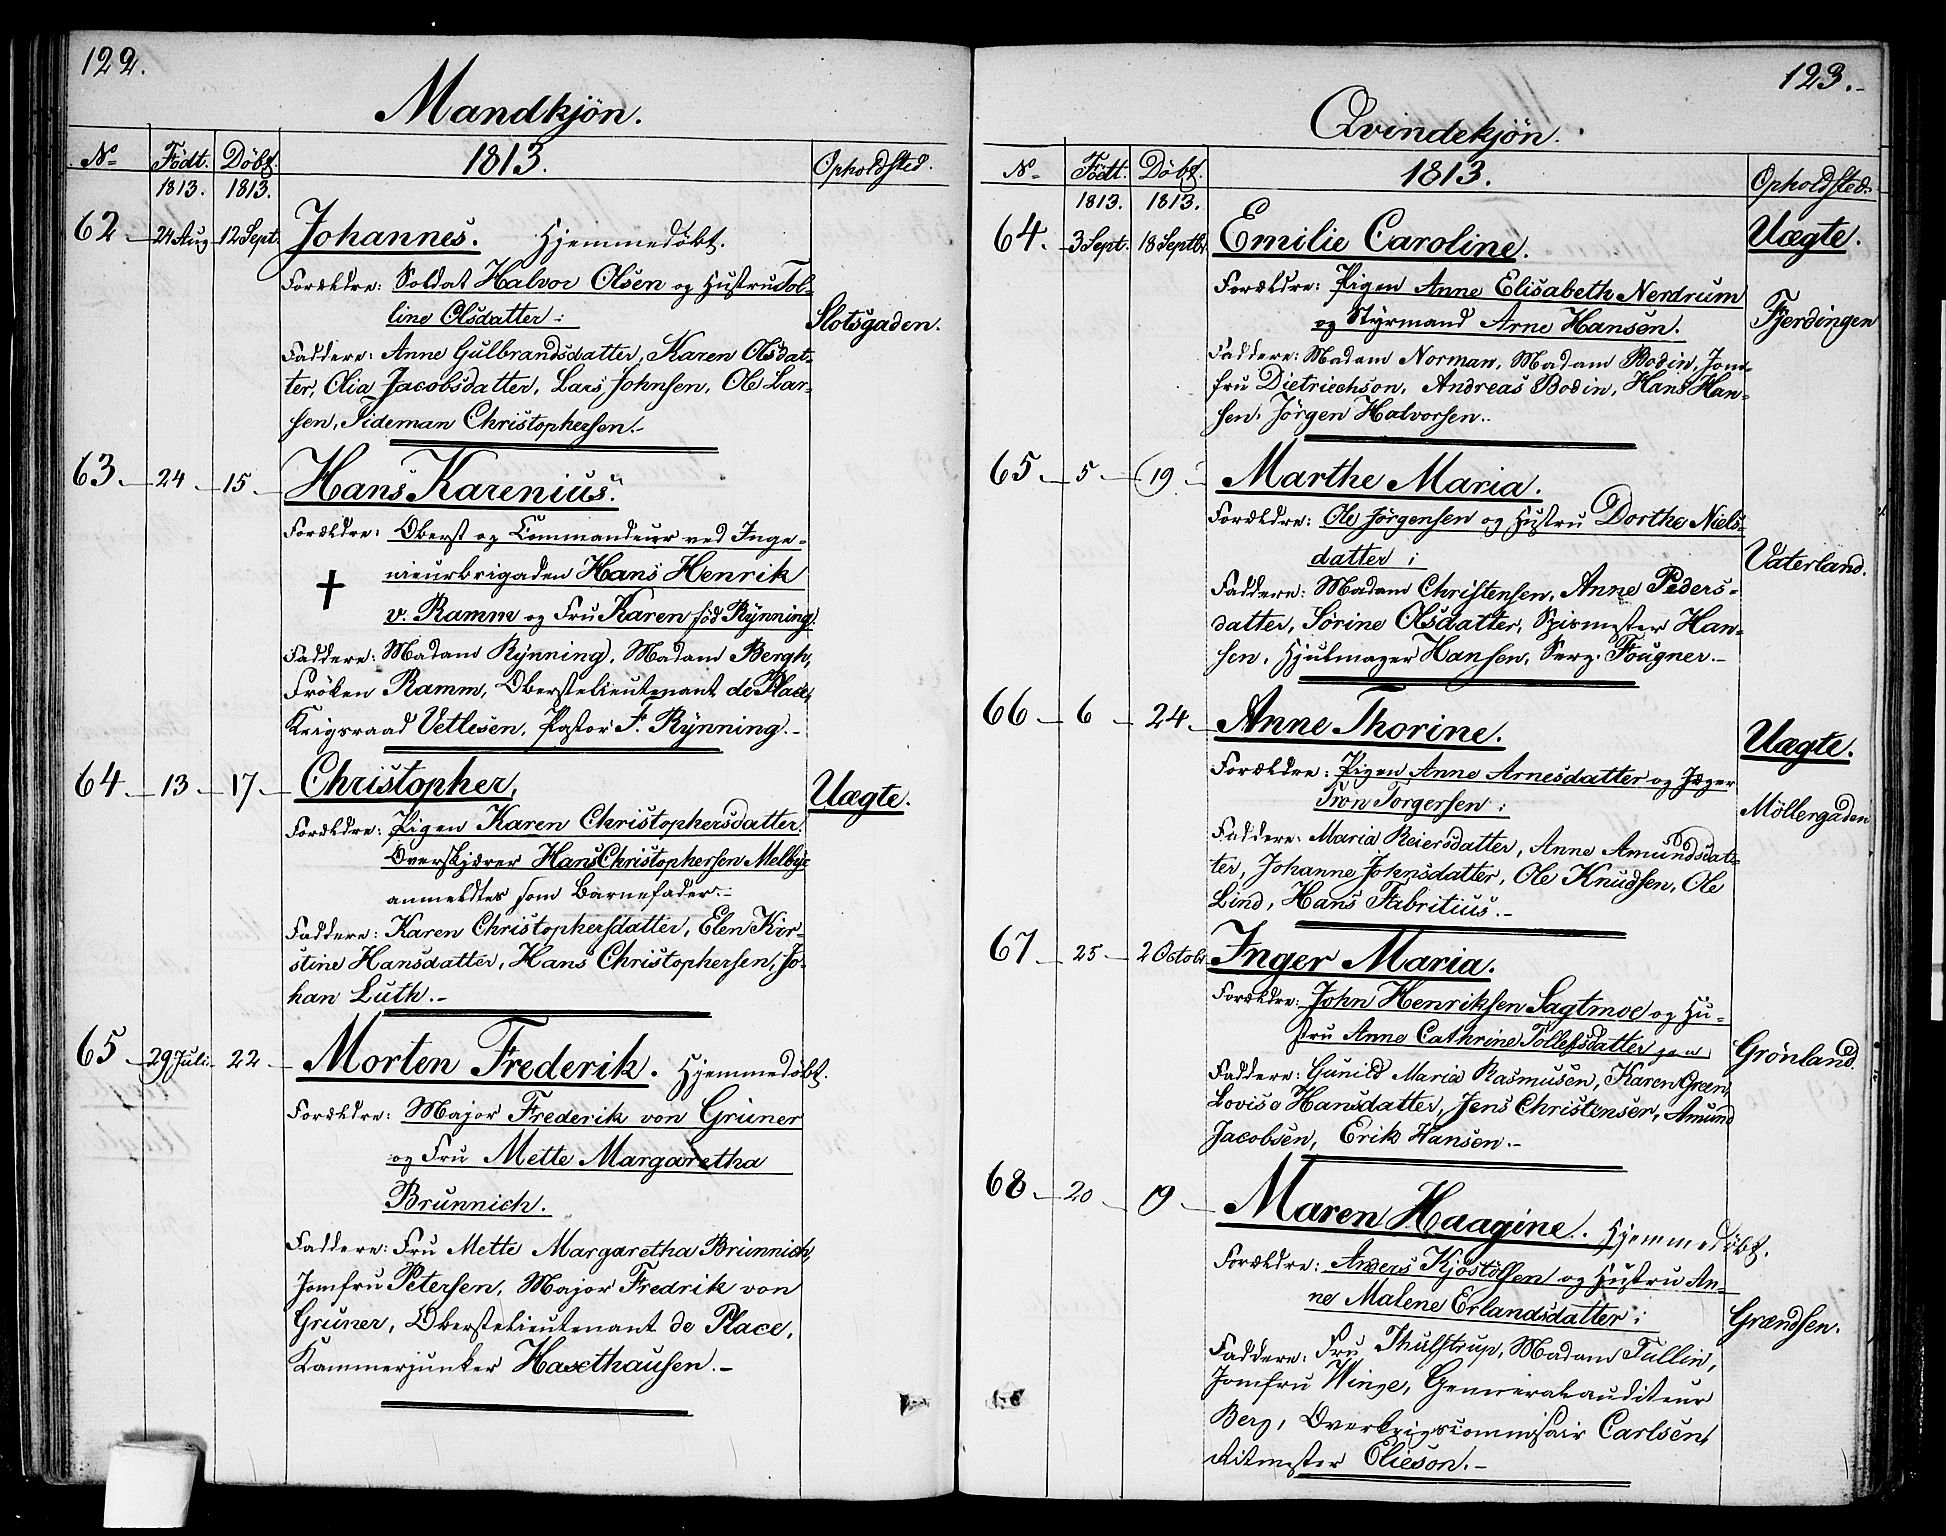 122.
Mandkjön.
No Födt. Döbt. 1813. Opholdsted.
1813. 1813.
62 24 Aug 12 Sept. Johannes. Hjemmedöbt.
Forældre: Soldat Halvor Olsen og Hustru Tol-
line Olsdatter: Slotsgaden.
Faddere: Anne Gulbrandsdatter, Karen Olsdat-
ter, Olia Jacobsdatter, Lars Johnsen, Ole Lar-
sen, Tideman Christophersen.-
63 24 15 Hans Karenius.
Forældre: Oberst og Commandeur ved Inge-
nieurbrigaden Hans Henrik
v. Ramm og Fru Karen föd Rynning.
Faddere: Madam Rynning, Madam Bergh,
Fröken Ramm, Oberstelieutenant de Place,
Krigsraad Vetlesen, Pastor F. Rynning.-
64 13 17 Christopher, Uægte.
Forældre: Pigen Karen Christophersdatter.
Overskjærer Hans Christophersen Melbye
anmeldtes som Barnefader.-
Faddere: Karen Christophersdatter, Elen Kir-
stine Hansdatter, Hans Christophersen, Jo-
han Luth.-
65 29 Juli 22 Morten Frederik. Hjemmedöbt.
Forældre: Major Frederik von Gruner
og Fru Mette Margaretha
Brunnich.
Faddere: Fru Mette Margaretha Brunnich,
Jomfru Petersen, Major Fredrik von
Gruner, Oberstelieutenant de Place,
Kammerjunker Haxthausen.-
123.-
Qvindekjön.
No Födt. Döbt. 1813. Opholdsted.
1813. 1813.
64. 3 Sept. 18 Septbr Emilie Caroline. Uægte.
Forældre: Pigen Anne Elisabeth Nerdrum
og Styrmand Arne Hansen. Fjerdingen
Faddere: Madam Norman, Madam Bodin, Jom-
fru Dietriechson, Andreas Bodin, Hans Han-
sen, Jörgen Halvorsen.
65 5 19 Marthe Maria.
Forældre: Ole Jörgensen og Hustru Dorthe Niels-
datter: Vaterland.
Faddere: Madam Christensen, Anne Peders-
datter, Sörine Olsdatter, Spismester Han-
sen, Hjulmager Hansen, Serg. Fougner.-
66 6 24 Anne Thorine. Uægte.
Forældre: Pigen Anne Arnesdatter og Jæger
Tron Torgersen: Möllergaden
Faddere: Maria Reiersdatter, Anne Amundsdat-
ter, Johanne Johnsdatter, Ole Knudsen, Ole
Lind, Hans Fabritius.-
67 25 2 Octobr Inger Maria.
Forældre: John Henriksen Sagtmoe og Hu-
stru Anne Cathrine Tollefsdatter Grönland.
Faddere: Gunild Maria Rasmusen, Karen Green,
Lovise Hansdatter, Jens Christensen, Amund
Jacobsen, Erik Hansen.-
68 20 9 Maren Haagine. Hjemmedöbt.
Forældre: Anders Kjöstolsen og Hustru An-
ne Malene Erlandsdatter: Grændsen.
Faddere: Fru Thulstrup, Madam Tullin,
Jomfru Winge, Generalauditeur
Berg, Overkrigscommisair Carlsen,
Ritmester Elieson.-